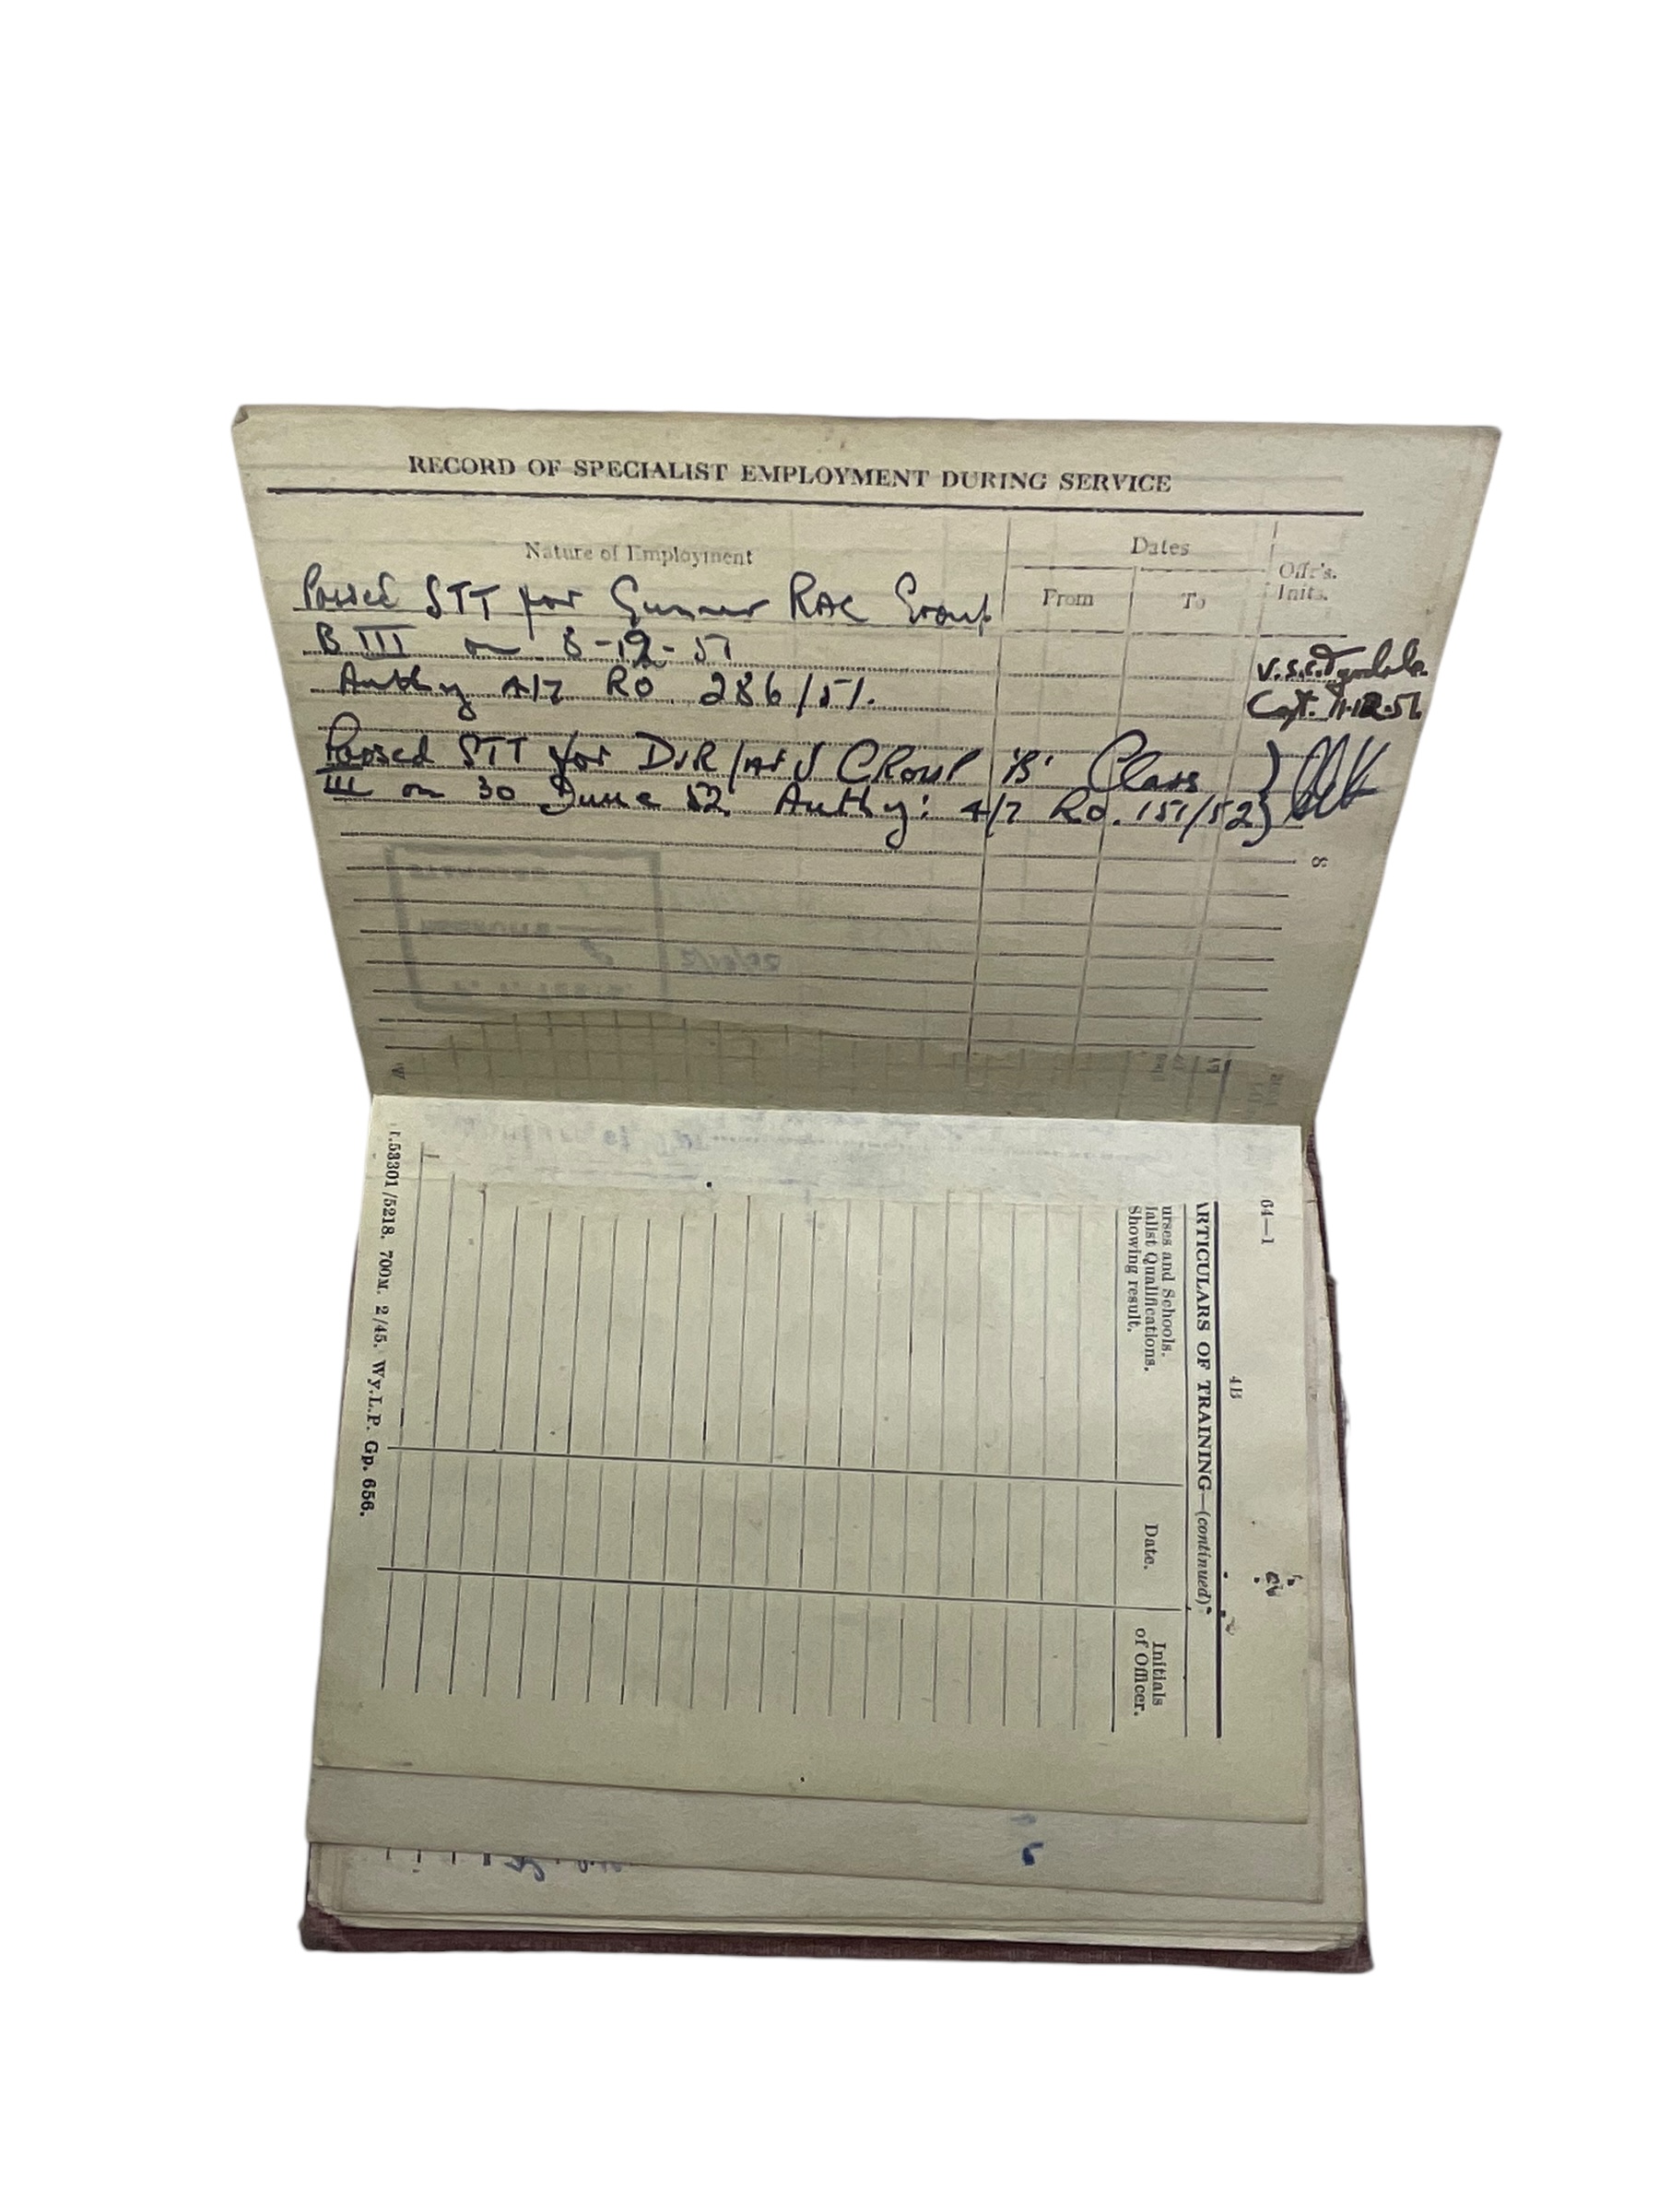 RECORD OF SPECIALIST EMPLOYMENT DURING SERVICE
Nature of Employment
Dates
From
To
Offr's.
Inits.
Passed STT for Gunner RAC Group
B III on 8-12-51
Authy 4/7 RO 286/51.
V.S.E.
Capt. 11.12.51.
Passed STT for DVR/ Group 'B' Class
III on 30 June 52. Authy: 4/7 RO. 151/52
8
64—1
4B
ARTICULARS OF TRAINING—(continued)
urses and Schools.
ialist Qualifications.
Showing result.
Date.
Initials
of Officer.
.53301/5218. 700M. 2/45. Wy.L.P. Gp. 656.